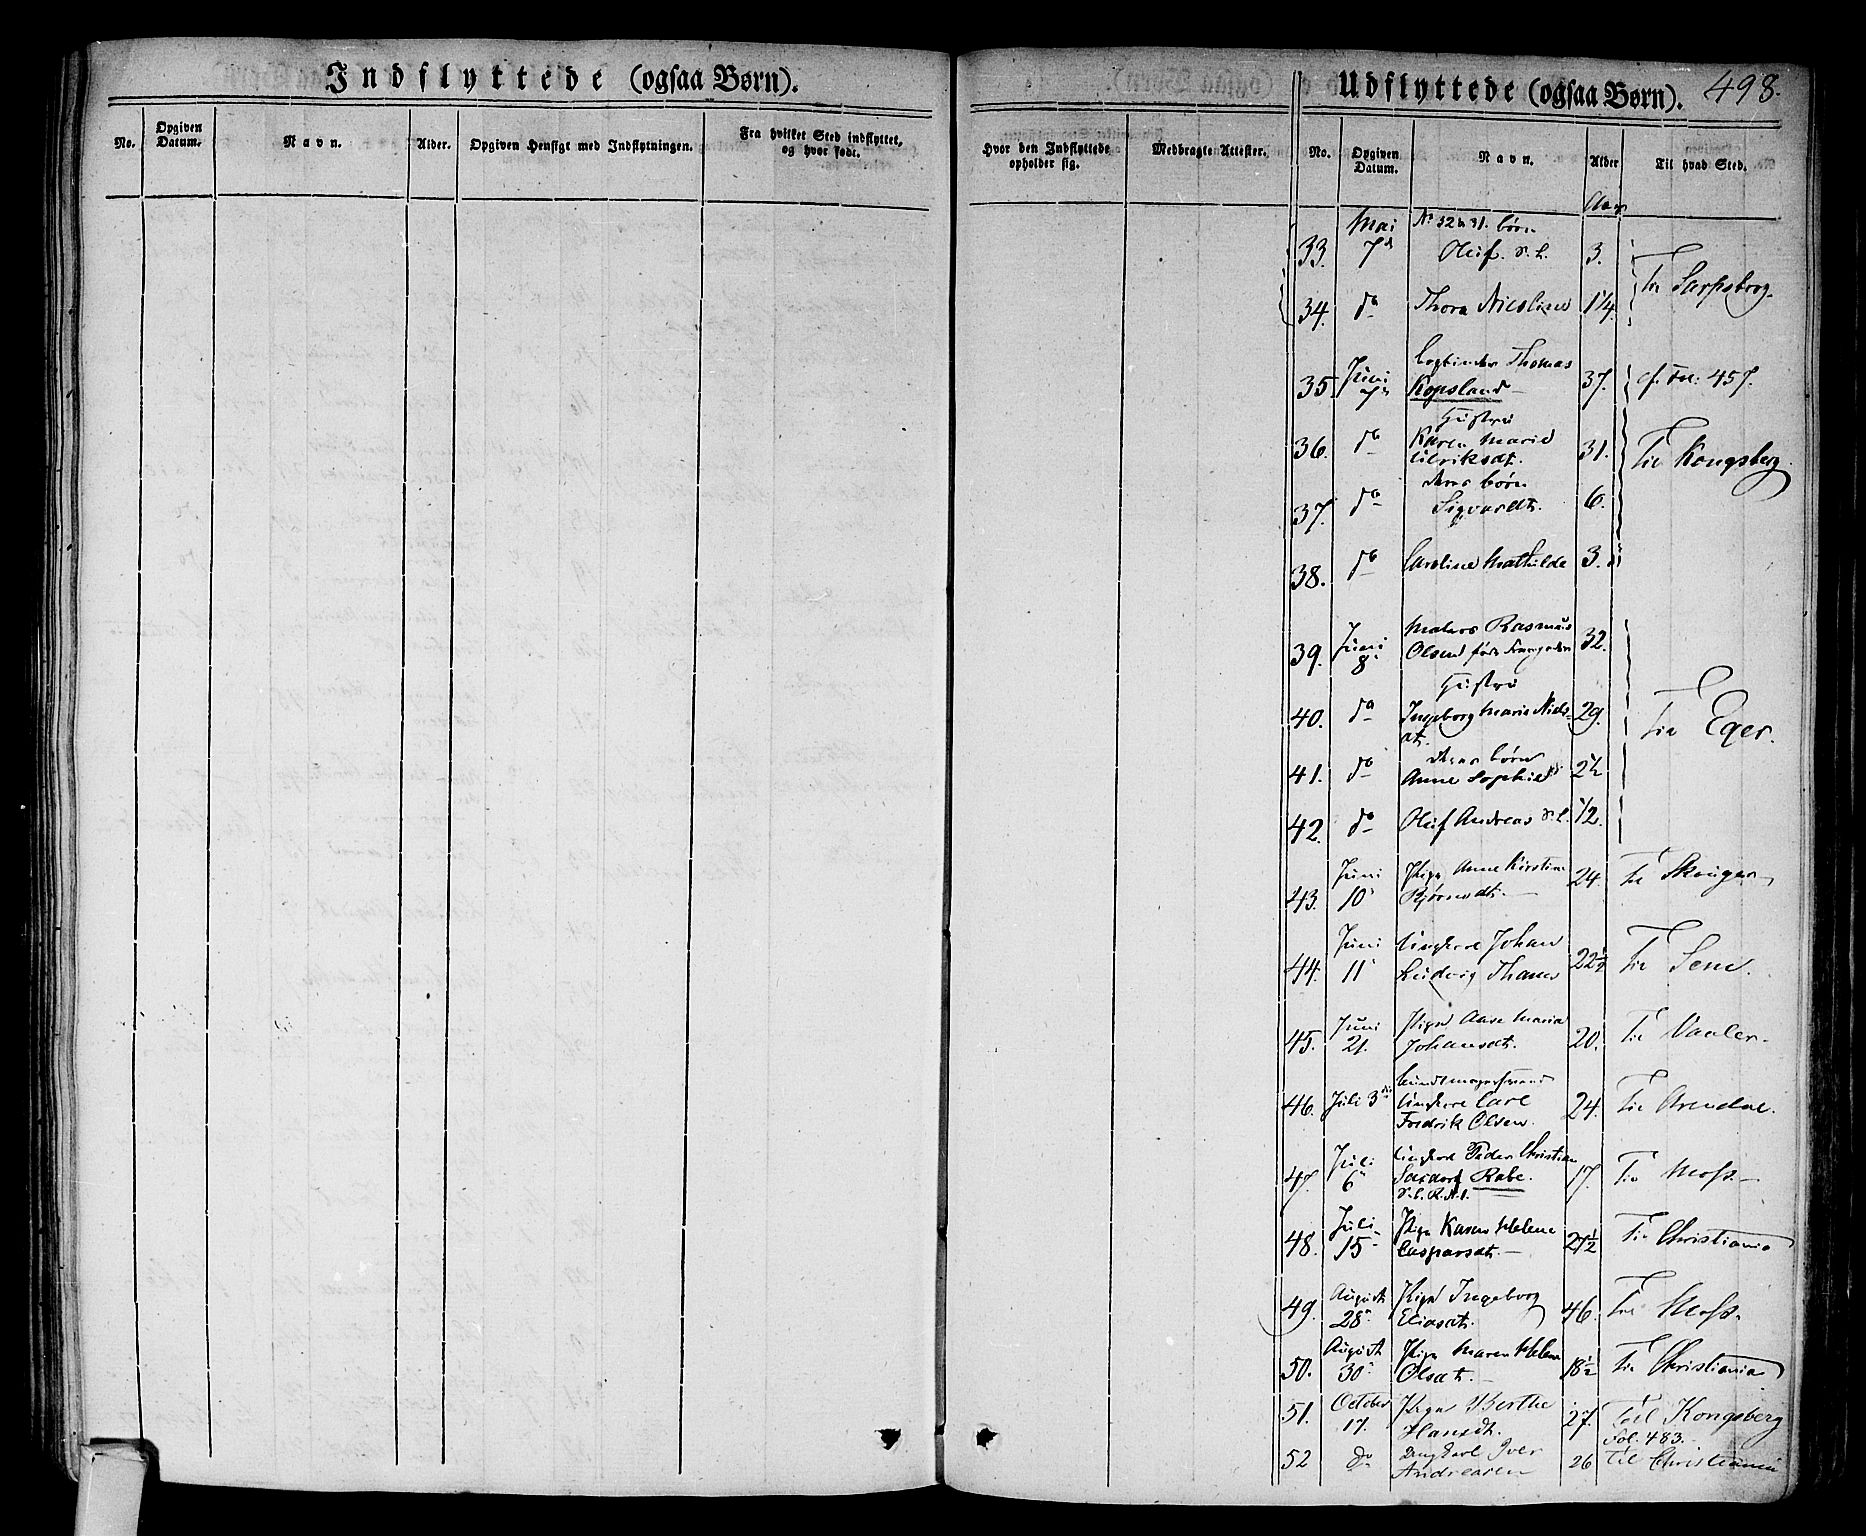 Indflyttede (ogsaa Børn).
No.
Opgiven Datum.
Navn.
Alder.
Opgiven Hensigt med Indflytningen.
Fra hvilket Sted indflyttet, og hvor født.
Hvor den Indflyttede opholder sig.
Medbragte Attester.
Udflyttede (ogsaa Børn). 498.
No.
Opgiven Datum.
Navn.
Alder
Til hvad Sted.
Aar
No 32 & 31. børn
33. Mai 7d Oluf. v. l. 3.
Til Sarpsborg.
34. do Thora Nicoline 1 1/4.
35. Juni Thomas
Kopsland 37. cf. Fol: 457.
Hustru
36. do Karen Marie
Ulriksdt. 31. Til Kongsberg
deres børn
37. do Sigvardt. 6.
38. do Caroline Mathilde 3.
39. Juni 8 Rasmus
Olsen 32.
Hustru
40. do Ingeborg Marie Niels-
dt. 29. Til Eger.
deres børn
41. do Anne Sophie 2 1/2
42. do Oluf Andreas v. l. 1/2.
43. Juni 10 Pige Anne Kirstine
Bjørnsdt. 24. Til Skouger
44. Juni 11 Ungkarl Johan
Ludvig Thams 22 1/2 Til Sem.
45. Juni 21. Pige Anne Maria
Johansdt. 20. Til Vaaler.
46. Juli 3die Bundtmagersvend
Ungkarl Carl
Fredrik Olsen. 24. Til Arendal.
47. Juli 6 Ungkarl Peder Christian
Rabe. 17. Til Moss.
48. Juli 15 Pige Karen Helene
Caspersdt. 27 1/2 Til Christiania
49. August 28 Pige Ingeborg
Eliasdt. 46. Til Moss.
50. August 30 Pige Maren Helene
Olsdt. 18 1/2 Til Christiania
51. October 17. Pige Berthe
Hansdt. 27. Til Kongsberg
Fol. 483.
52 do Ungkarl Iver
Andreasen 26 Til Christiania